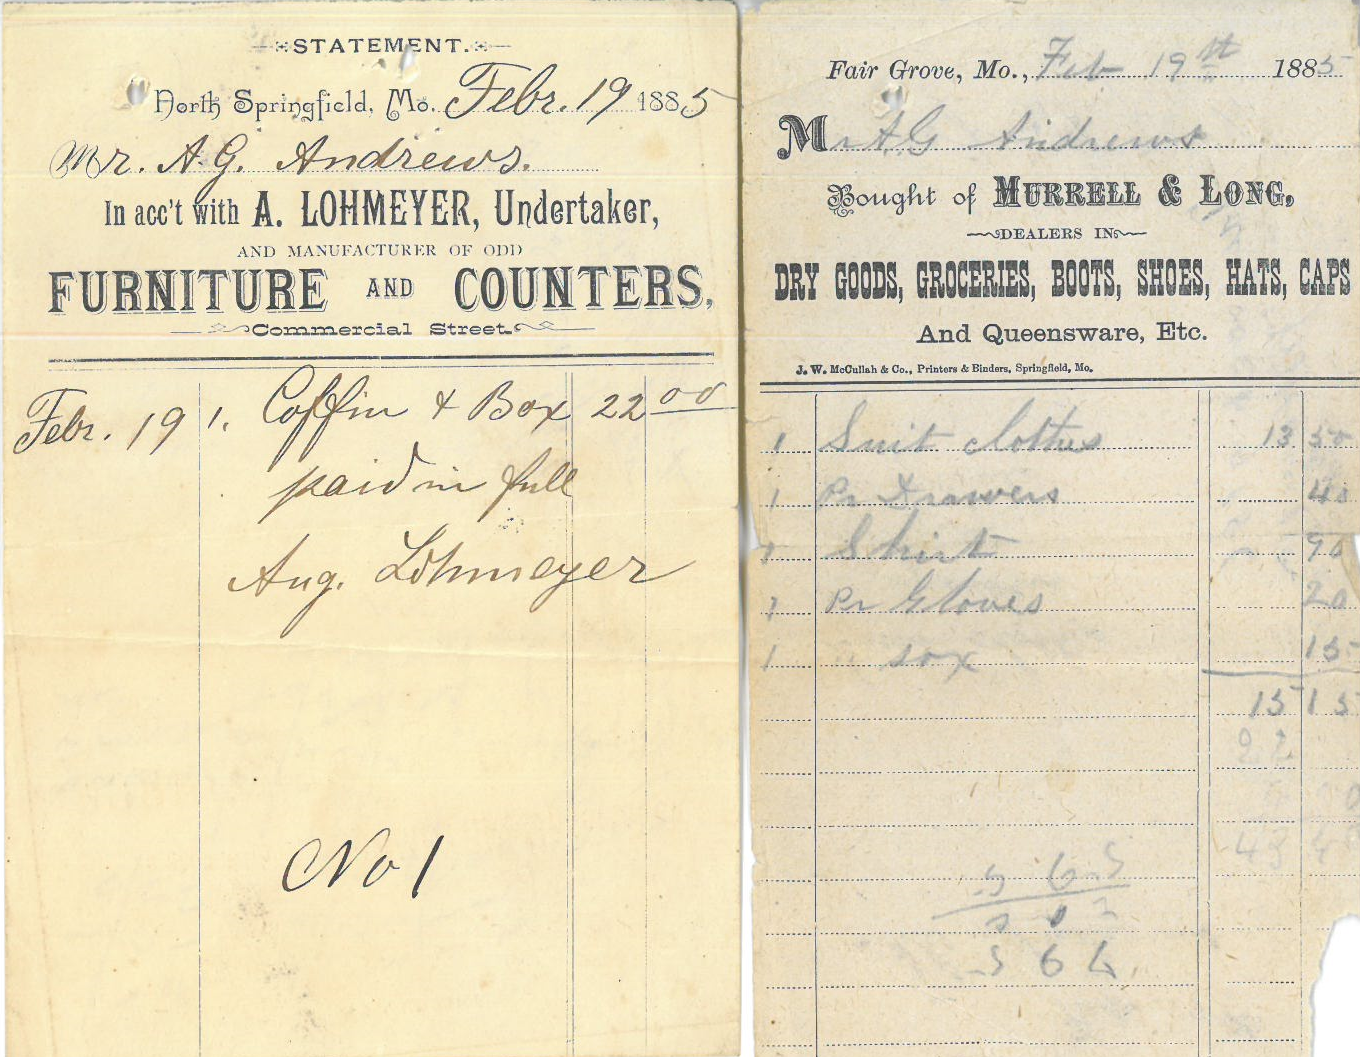 STATEMENT.
North Springfield, Mo. Febr. 19 1885
Mr. A.G. Andrews.
In acc't with A. LOHMEYER, Undertaker,
AND MANUFACTURER OF ODD
FURNITURE AND COUNTERS,
Commercial Street.
Febr. 19 1. Coffin & Box 22 00
paid in full
Aug. Lohmeyer
No 1
Fair Grove, Mo., Feb 19th 1885
Mr A G Andrews
Bought of MURRELL & LONG,
DEALERS IN
DRY GOODS, GROCERIES, BOOTS, SHOES, HATS, CAPS
And Queensware, Etc.
J. W. McCullah & Co., Printers & Binders, Springfield, Mo.
1 Suit clothes 13 50
1 Pr Drawers 40
1 Shirt 90
1 Pr Gloves 20
1 " sox 15
15 15
22